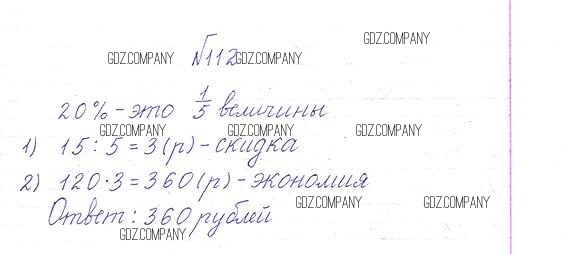 GDZ.COMPANY
№112
GDZ.COMPANY GDZ.COMPANY
20% - это 1/5 величины
GDZ.COMPANY GDZ.COMPANY GDZ.COMPANY
1) 15 : 5 = 3 (р) - скидка
2) 120 · 3 = 360 (р) - экономия
GDZ.COMPANY GDZ.COMPANY
Ответ : 360 рублей
GDZ.COMPANY